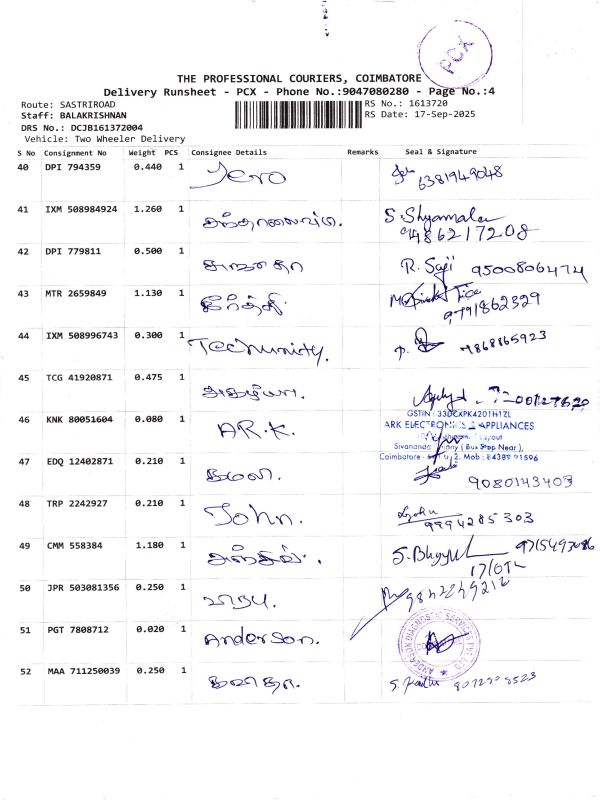 PCX
THE PROFESSIONAL COURIERS, COIMBATORE
Delivery Runsheet - PCX - Phone No.:9047080280 - Page No.:4
Route: SASTRIROAD
RS No.: 1613720
Staff: BALAKRISHNAN
RS Date: 17-Sep-2025
DRS No.: DCJB161372004
Vehicle: Two Wheeler Delivery
S No Consignment No Weight PCS Consignee Details Remarks Seal & Signature
40 DPI 794359 0.440 1 Jeno 6381949048
41 IXM 508984924 1.260 1 S. Shyamala
9486217208
42 DPI 779811 0.500 1 R. Saji 9500806474
43 MTR 2659849 1.130 1 கீர்த்தி
9791862329
44 IXM 508996743 0.300 1 Techunity. 9868165923
45 TCG 41920871 0.475 1
46 KNK 80051604 0.080 1 AR.K.
GSTIN : 33DCXPK4201H1ZL
ARK ELECTRONICS & APPLIANCES
Layout
Sivananda (Bus Stop Near),
Coimbatore 2. Mob : 84389 91596
47 EDQ 12402871 0.210 1 கமல 9080143403
48 TRP 2242927 0.210 1 John. John
9994285303
49 CMM 558384 1.180 1 9715493086
50 JPR 503081356 0.250 1 பாபு.
51 PGT 7808712 0.020 1 Anderson.
ANDERSON DIAGNOSTIC SERVICES PVT LTD
52 MAA 711250039 0.250 1 கவிதா.